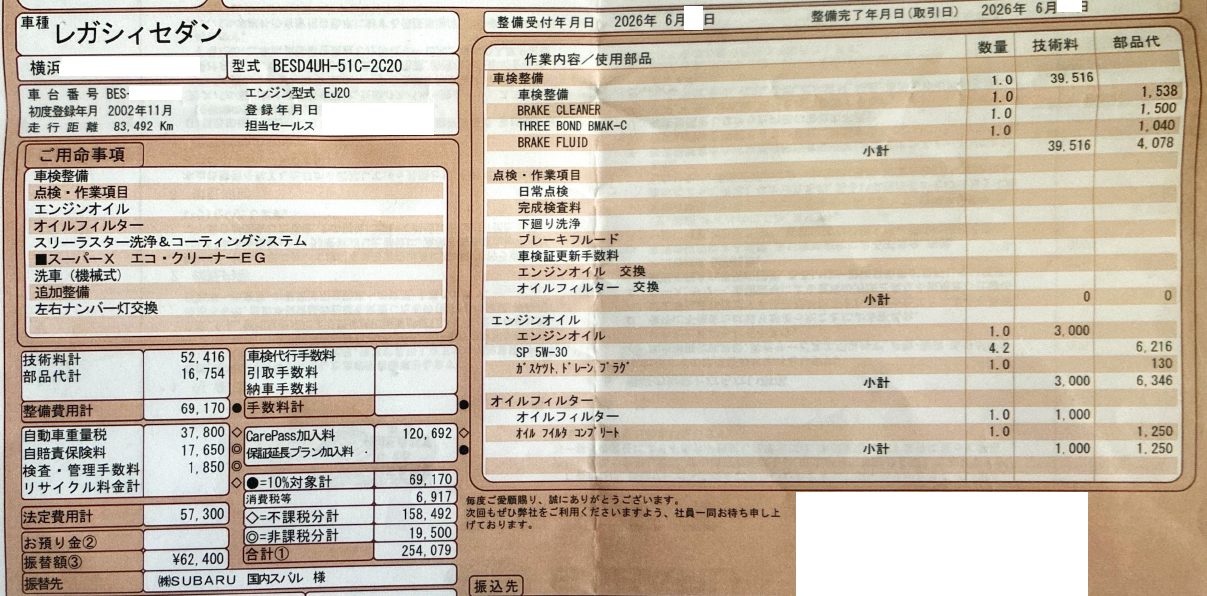 車種
レガシィセダン
横浜
型式 BESD4UH-51C-2C20
車台番号 BES-
エンジン型式 EJ20
初度登録年月 2002年11月
登録年月日
走行距離 83,492 Km
担当セールス
ご用命事項
車検整備
点検・作業項目
エンジンオイル
オイルフィルター
スリーラスター洗浄&コーティングシステム
■スーパーX エコ・クリーナーEG
洗車(機械式)
追加整備
左右ナンバー灯交換
技術料計 52,416
部品代計 16,754
整備費用計 69,170 ●
自動車重量税 37,800 ◇
自賠責保険料 17,650 ◎
検査・管理手数料 1,850 ◎
リサイクル料金計 ◇
法定費用計 57,300
お預り金②
振替額③ ¥62,400
振替先 ㈱SUBARU 国内スバル 様
車検代行手数料
引取手数料
納車手数料
手数料計 ●
CarePass加入料 120,692 ◇
保証延長プラン加入料 ●
●=10%対象計 69,170
消費税等 6,917
◇=不課税分計 158,492
◎=非課税分計 19,500
合計① 254,079
整備受付年月日 2026年 6月 日
整備完了年月日(取引日) 2026年 6月 日
作業内容/使用部品 数量 技術料 部品代
車検整備
車検整備 1.0 39,516
BRAKE CLEANER 1.0 1,538
THREE BOND BMAK-C 1.0 1,500
BRAKE FLUID 1.0 1,040
小計 39,516 4,078
点検・作業項目
日常点検
完成検査料
下廻り洗浄
ブレーキフルード
車検証更新手数料
エンジンオイル 交換
オイルフィルター 交換
小計 0 0
エンジンオイル
エンジンオイル 1.0 3,000
SP 5W-30 4.2 6,216
ガスケツト,ドレーン,プラグ 1.0 130
小計 3,000 6,346
オイルフィルター
オイルフィルター 1.0 1,000
オイル フイルタ コンプリート 1.0 1,250
小計 1,000 1,250
毎度ご愛顧賜り、誠にありがとうございます。
次回もぜひ弊社をご利用くださいますよう、社員一同お待ち申し上
げております。
振込先